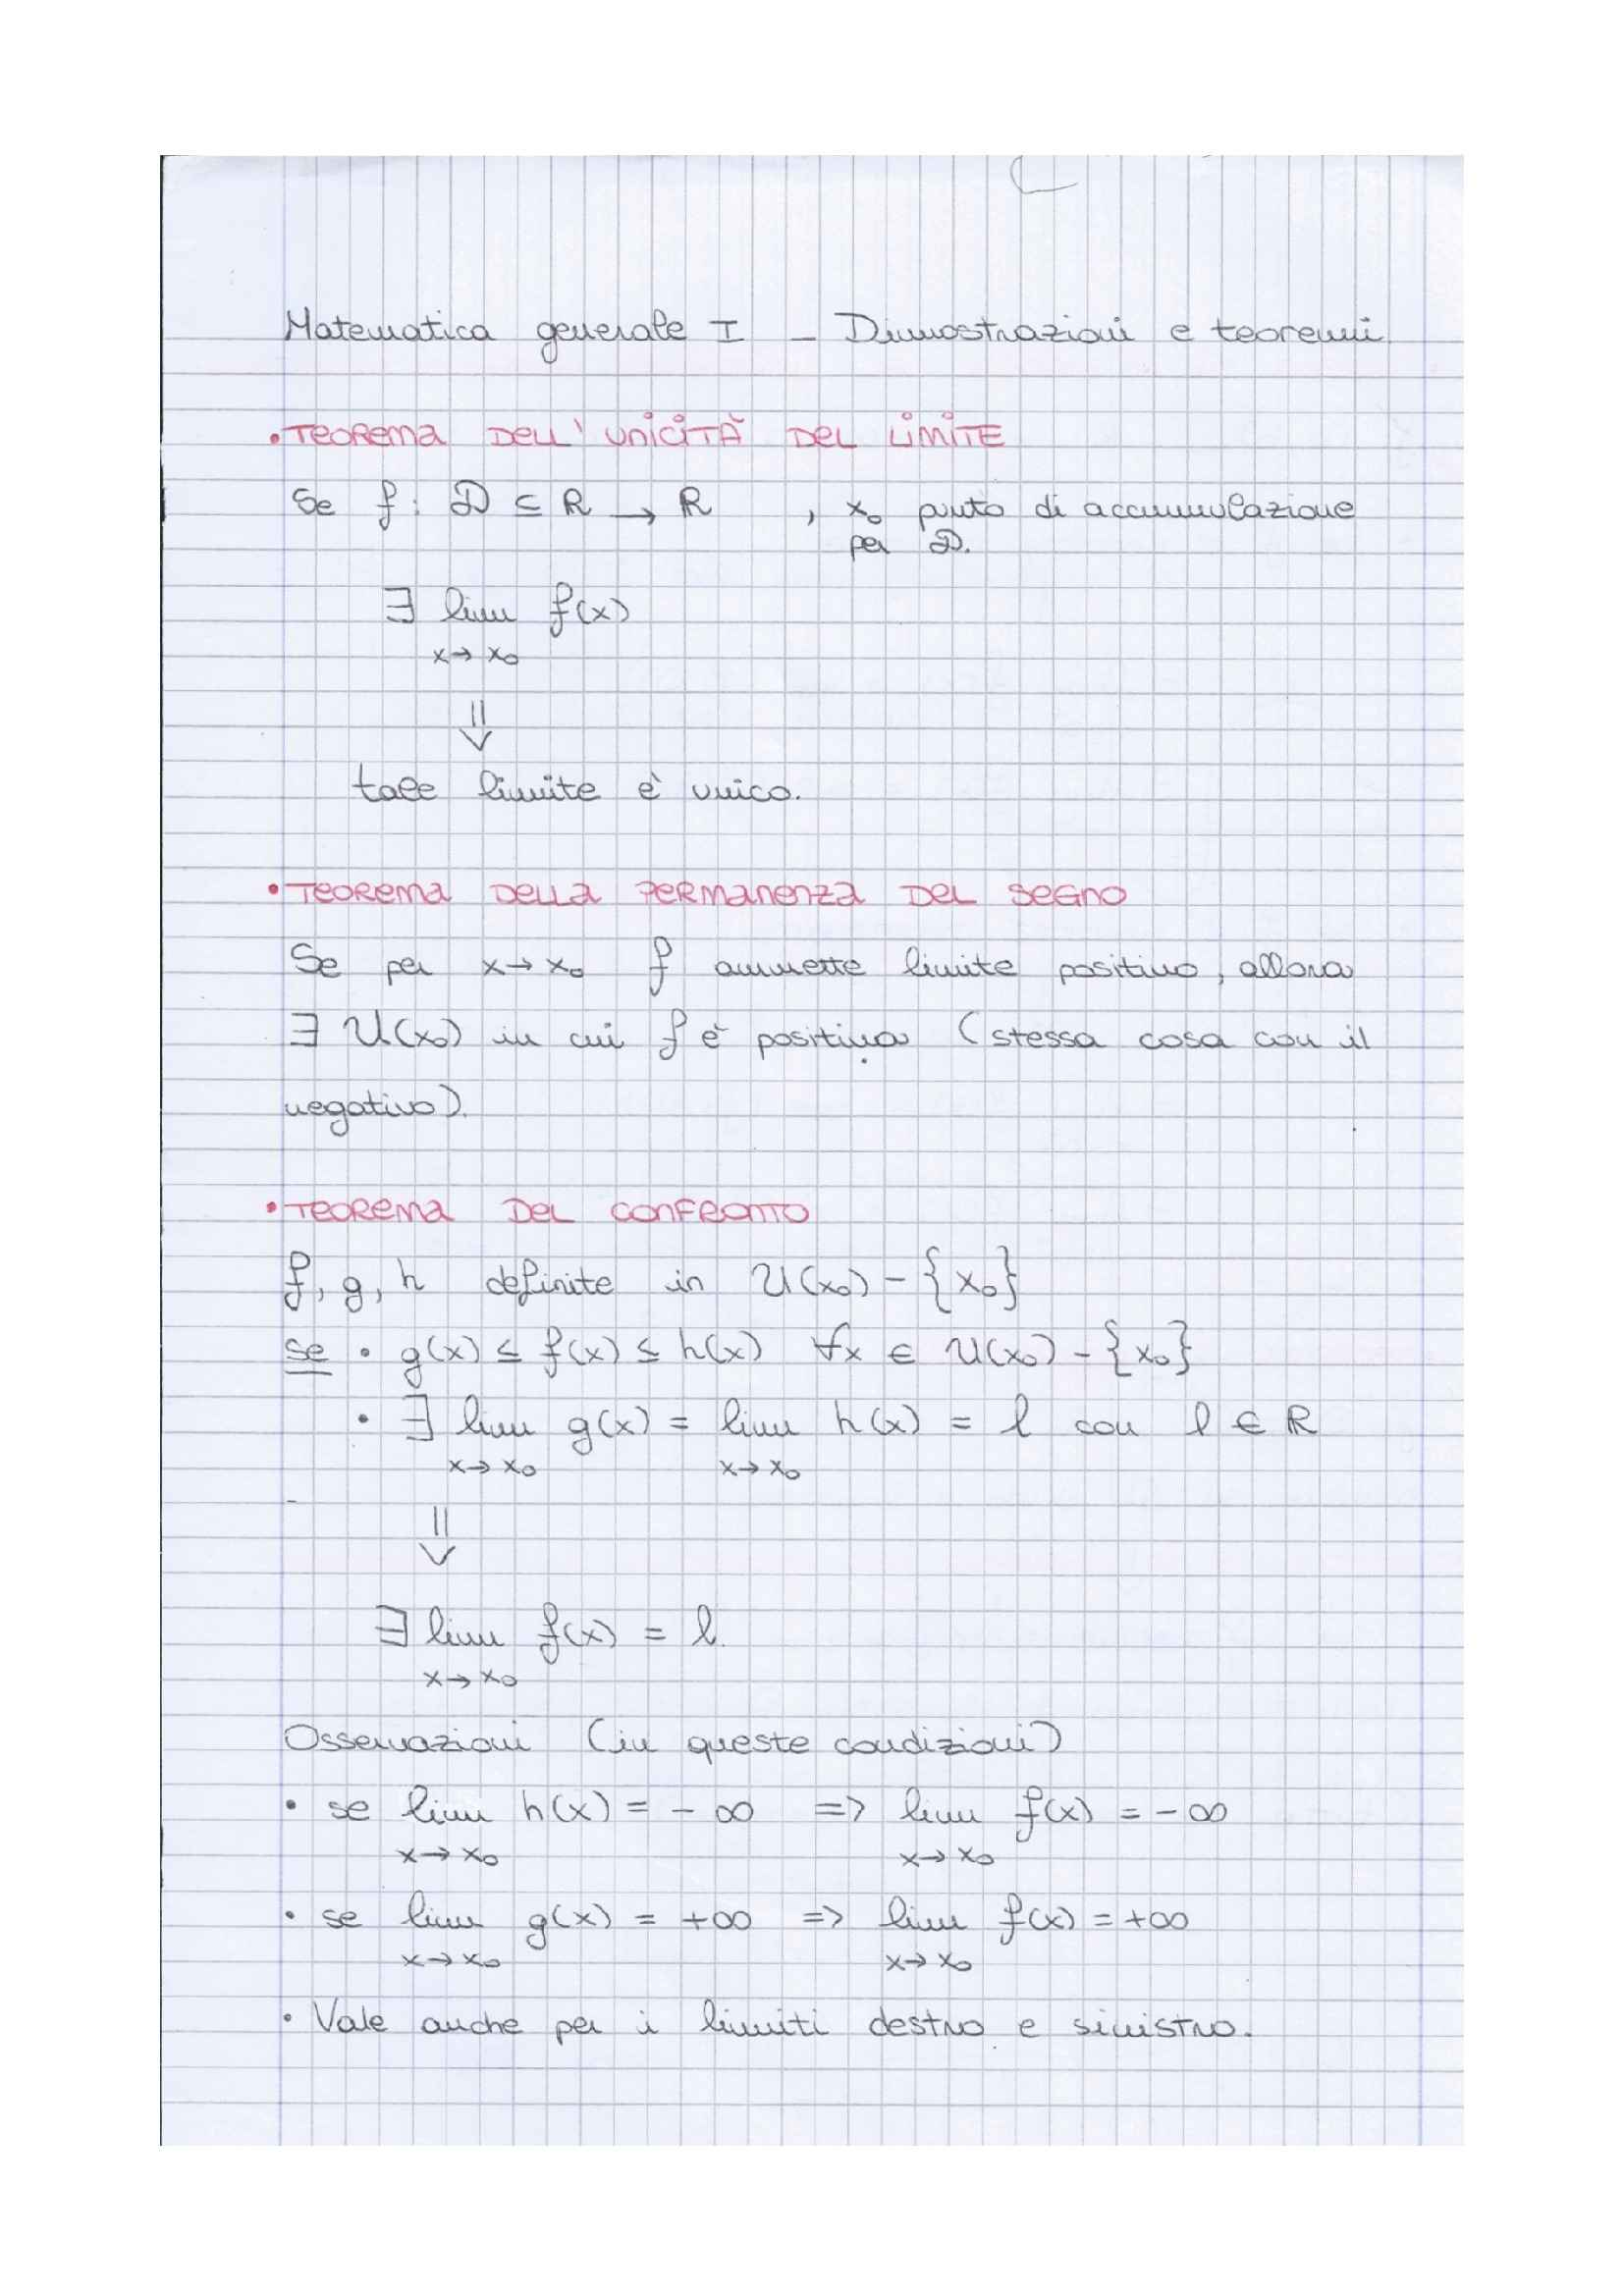 Matematica generale I – Dimostrazioni e teoremi
• TEOREMA DELL'UNICITÀ DEL LIMITE
Se f: D ⊆ R → R , x₀ punto di accumulazione
per D.
∃ lim f(x)
x→x₀
⇓
tale limite è unico.
• TEOREMA DELLA PERMANENZA DEL SEGNO
Se per x→x₀ f ammette limite positivo, allora
∃ U(x₀) in cui f è positiva (stessa cosa con il
negativo).
• TEOREMA DEL CONFRONTO
f, g, h definite in U(x₀) - {x₀}
se • g(x) ≤ f(x) ≤ h(x) ∀x ∈ U(x₀) - {x₀}
• ∃ lim g(x) = lim h(x) = l con l ∈ R
x→x₀ x→x₀
⇓
∃ lim f(x) = l
x→x₀
Osservazioni (in queste condizioni)
• se lim h(x) = -∞ => lim f(x) = -∞
x→x₀ x→x₀
• se lim g(x) = +∞ => lim f(x) = +∞
x→x₀ x→x₀
• Vale anche per i limiti destro e sinistro.